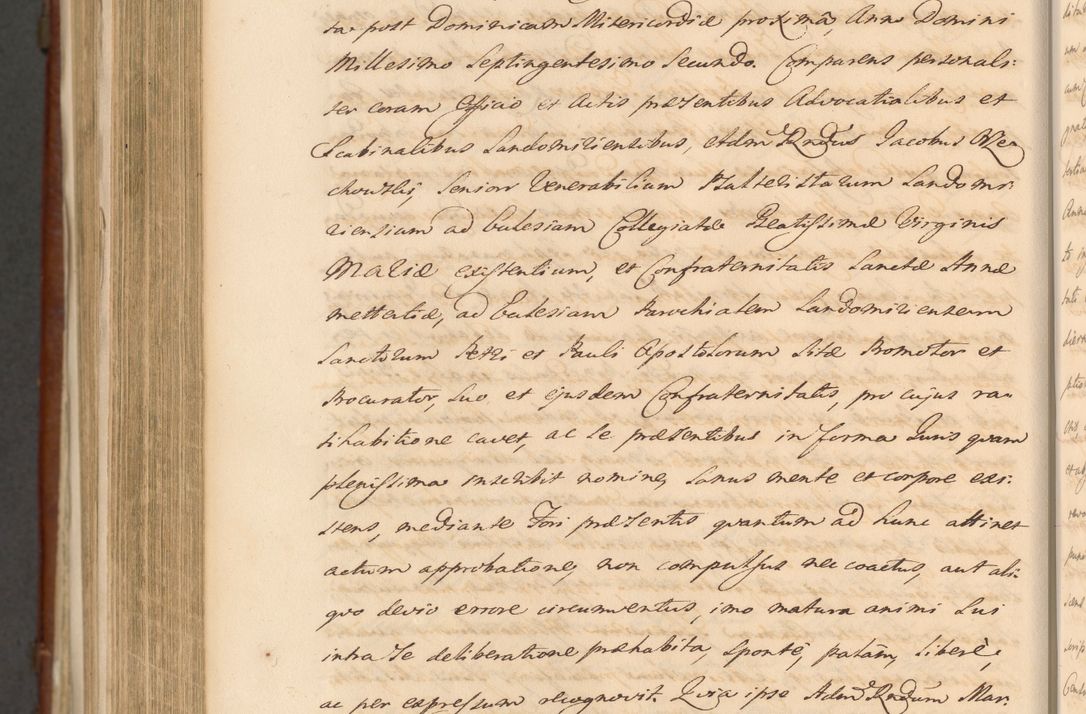 ria post Dominicam Misericordiæ proximã, Anno Domini
Millesimo Septingentesimo Secundo. Comparens personali:
ter coram Officio et Actis præsentibus Advocatialibus et
Scabinalibus Sandomiriensibus, Adm Rndus Jacobus Wie
chowskij, Senior Venerabilium Psalteristarum Sandomi:
riensium ad Ecclesiam Collegiatæ Beatissimæ Virginis
Mariæ existentium, et Confraternitatis Sanctæ Annæ
mettertiæ, ad Ecclesiam Parochialem Sandomiriensem
Sanctorum Petri et Pauli Apostolorum Sitæ Promotor et
Procurator, Suo et ejusdem Confraternitatis, pro cujus ra-
tihabitione cavet, ac se præsentibus in forma Juris quam
plenissima inscribit nomine, Sanus mente et corpore exi:
stens, mediante Fori præsentis quantum ad hunc attinet
actum approbatione, non compulsus nec coactus, aut ali:
quo devio errore circumventus, imo matura animi Sui
intra Se deliberatione præhabita, Sponte, palàm, liberè,
ac per expressum recognovit. Quia ipse Adm Rndum Mar: